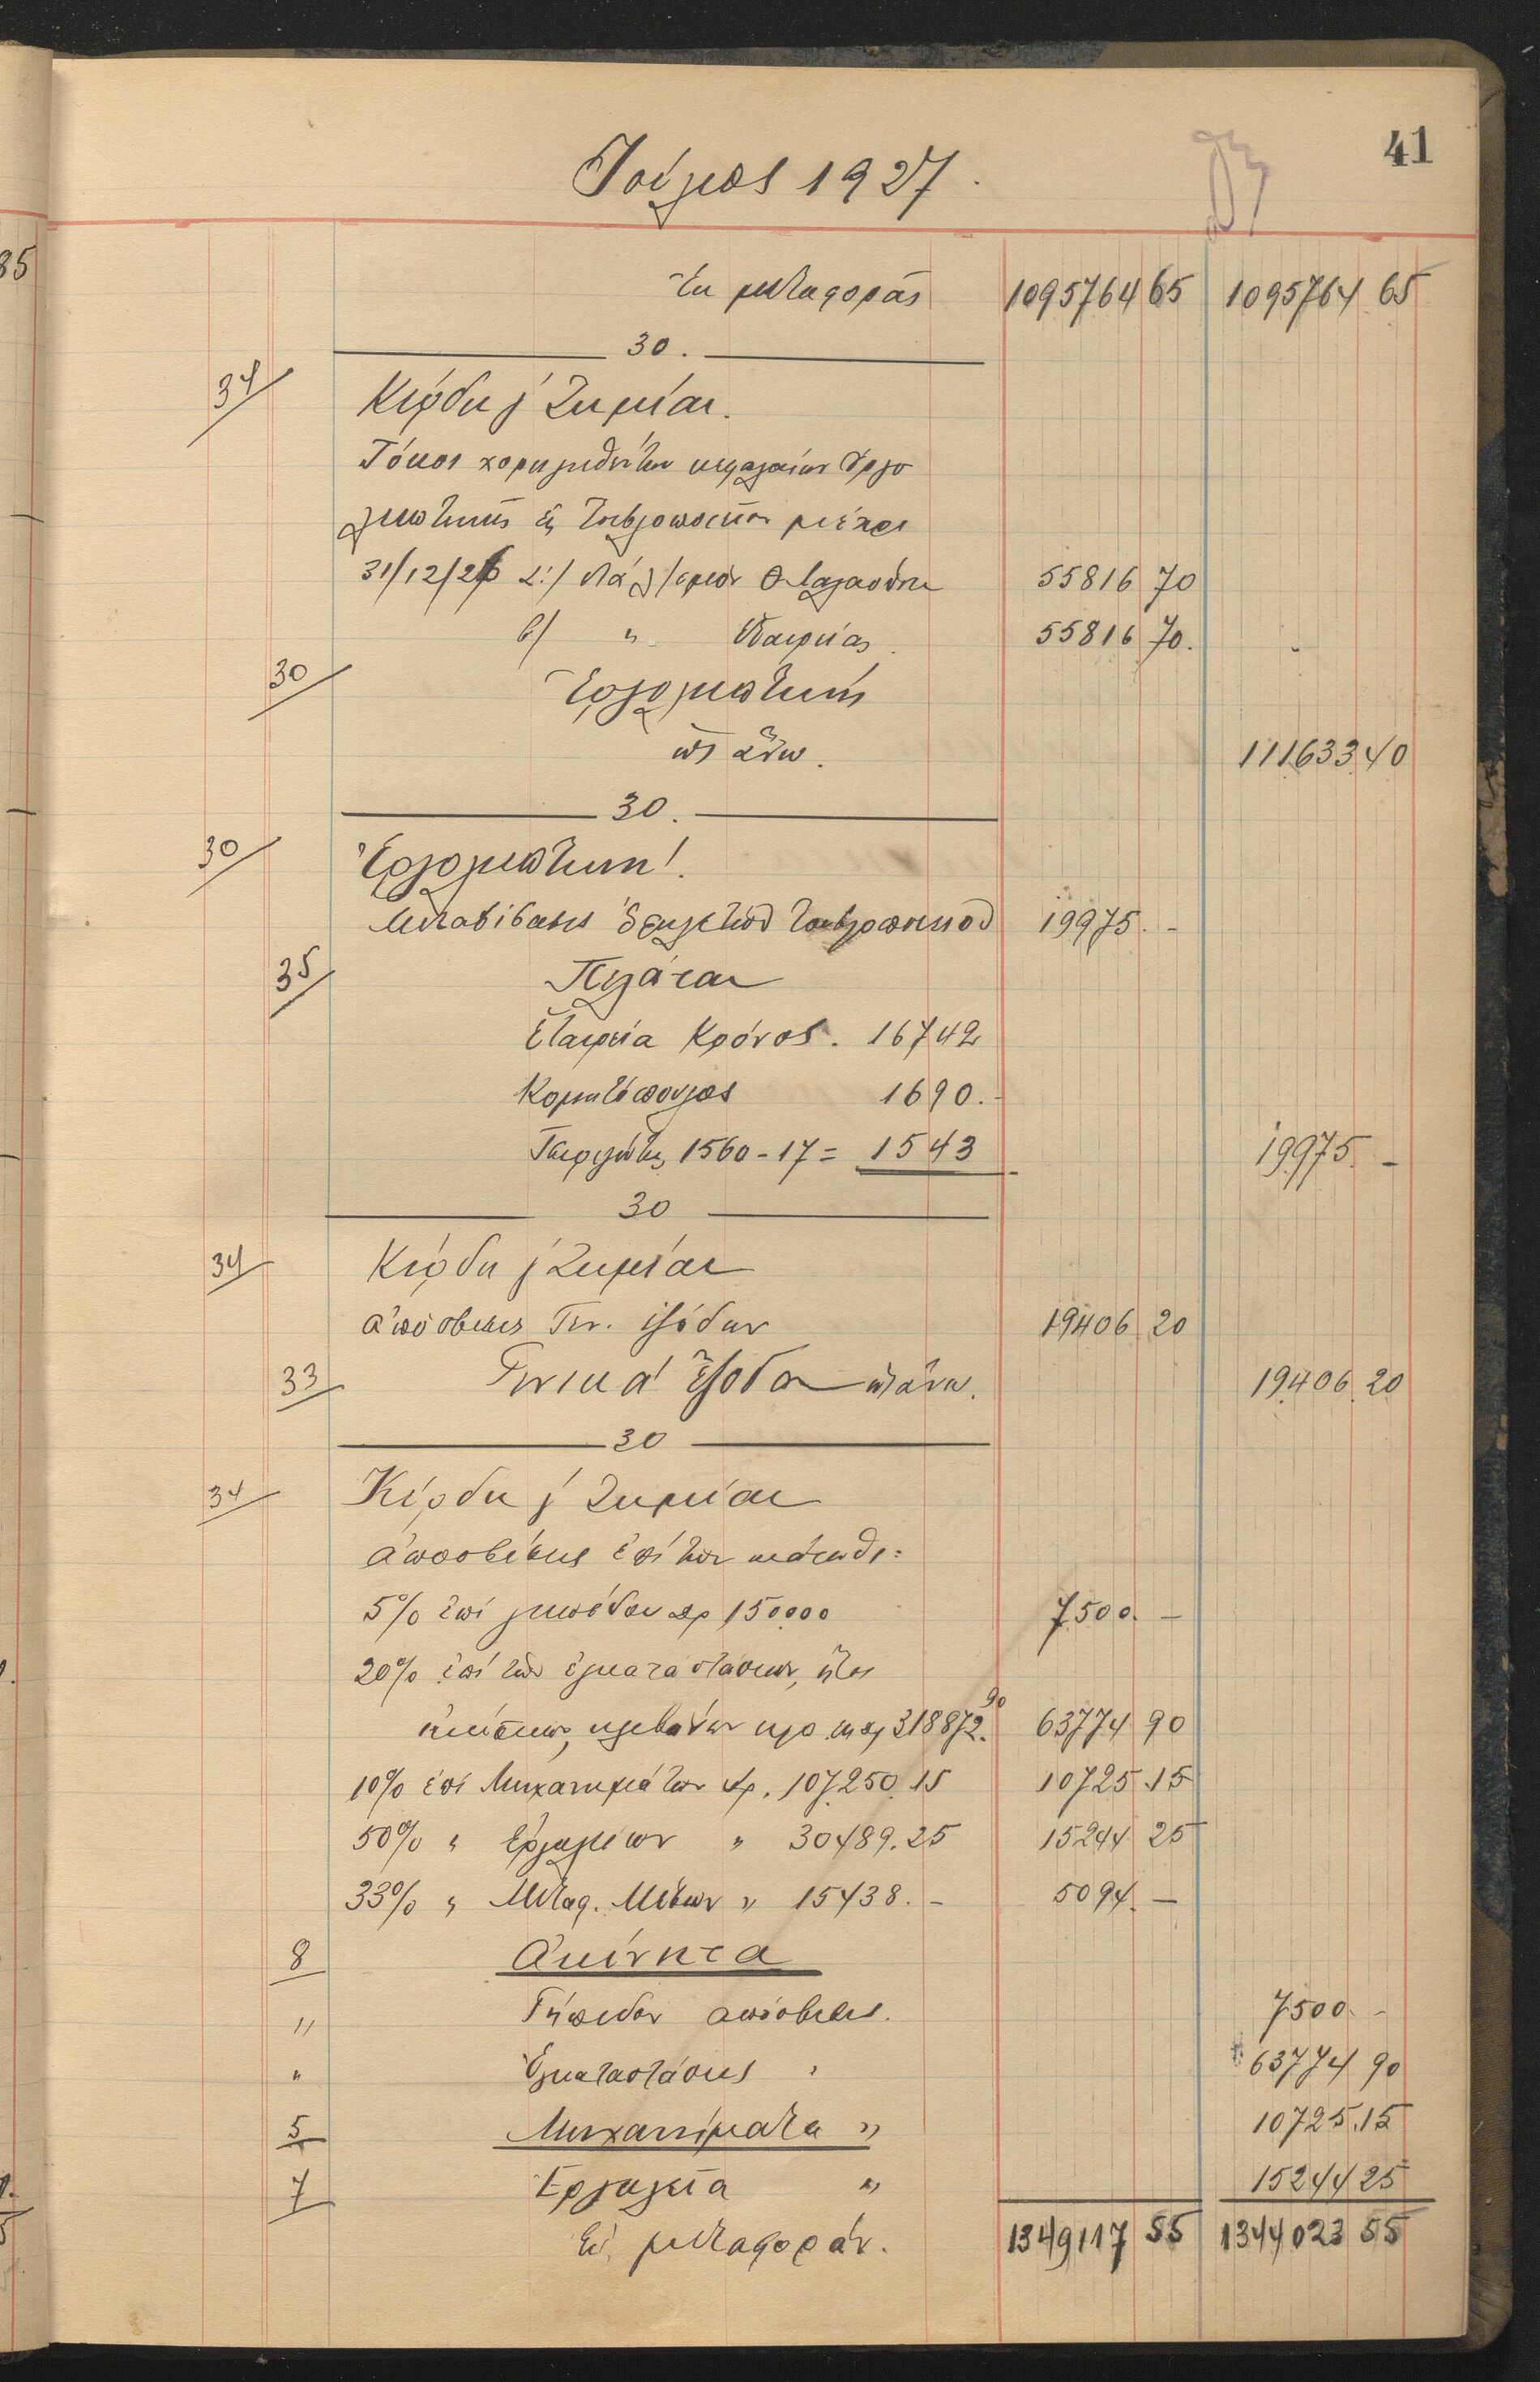 41
Ἰούλιος 1927.
Ἐκ μεταφορᾶς 1095764 65 1095764 65
30.
34 Κέρδη & Ζημίαι.
Τόκοι χορηγηθέντων κεφαλαίων Ἐργο
ληπτικῆς εἰς μέχρι
31/12/26 α/ διὰ λ/σμὸν 55816 70
β/ " Ἑταιρείας. 55816 70.
30 Ἐργοληπτική
ὡς ἄνω. 111633 40
30.
30 Ἐργοληπτική.
Μεταβίβασις 19975. -
35 Πελάται
Ἑταιρεία Κρόνος. 16742
Κομητόπουλος 1690.-
1560-17= 1543 19975. -
30
34 Κέρδη & Ζημίαι
ἀπόσβεσις Γεν. ἐξόδων 19406 20
33 Γενικὰ Ἔξοδα ὡς ἄνω. 19406 20
30
34 Κέρδη & Ζημίαι
ἀποσβέσεις ἐπὶ τῶν κάτωθι:
5% ἐπὶ γηπέδου δρ 150000 7500. -
20% ἐπὶ τῶν ἐγκαταστάσεων, ἤτοι
κλιβάνων κλπ. ἐκ δρ 318872.90 63774 90
10% ἐπὶ Μηχανημάτων δρ. 107.250.15 10725.15
50% " Ἐργαλείων " 30489.25 15244 25
33% " Μεταφ. Μέσων " 15438. - 5094. -
8 Ἀκίνητα
" Γήπεδον ἀπόσβεσις. 7500. -
" Ἐγκαταστάσεις " 63774 90
5 Μηχανήματα " 10725.15
7 Ἐργαλεῖα " 15244 25
Εἰς μεταφοράν. 1349117 55 1344023 55